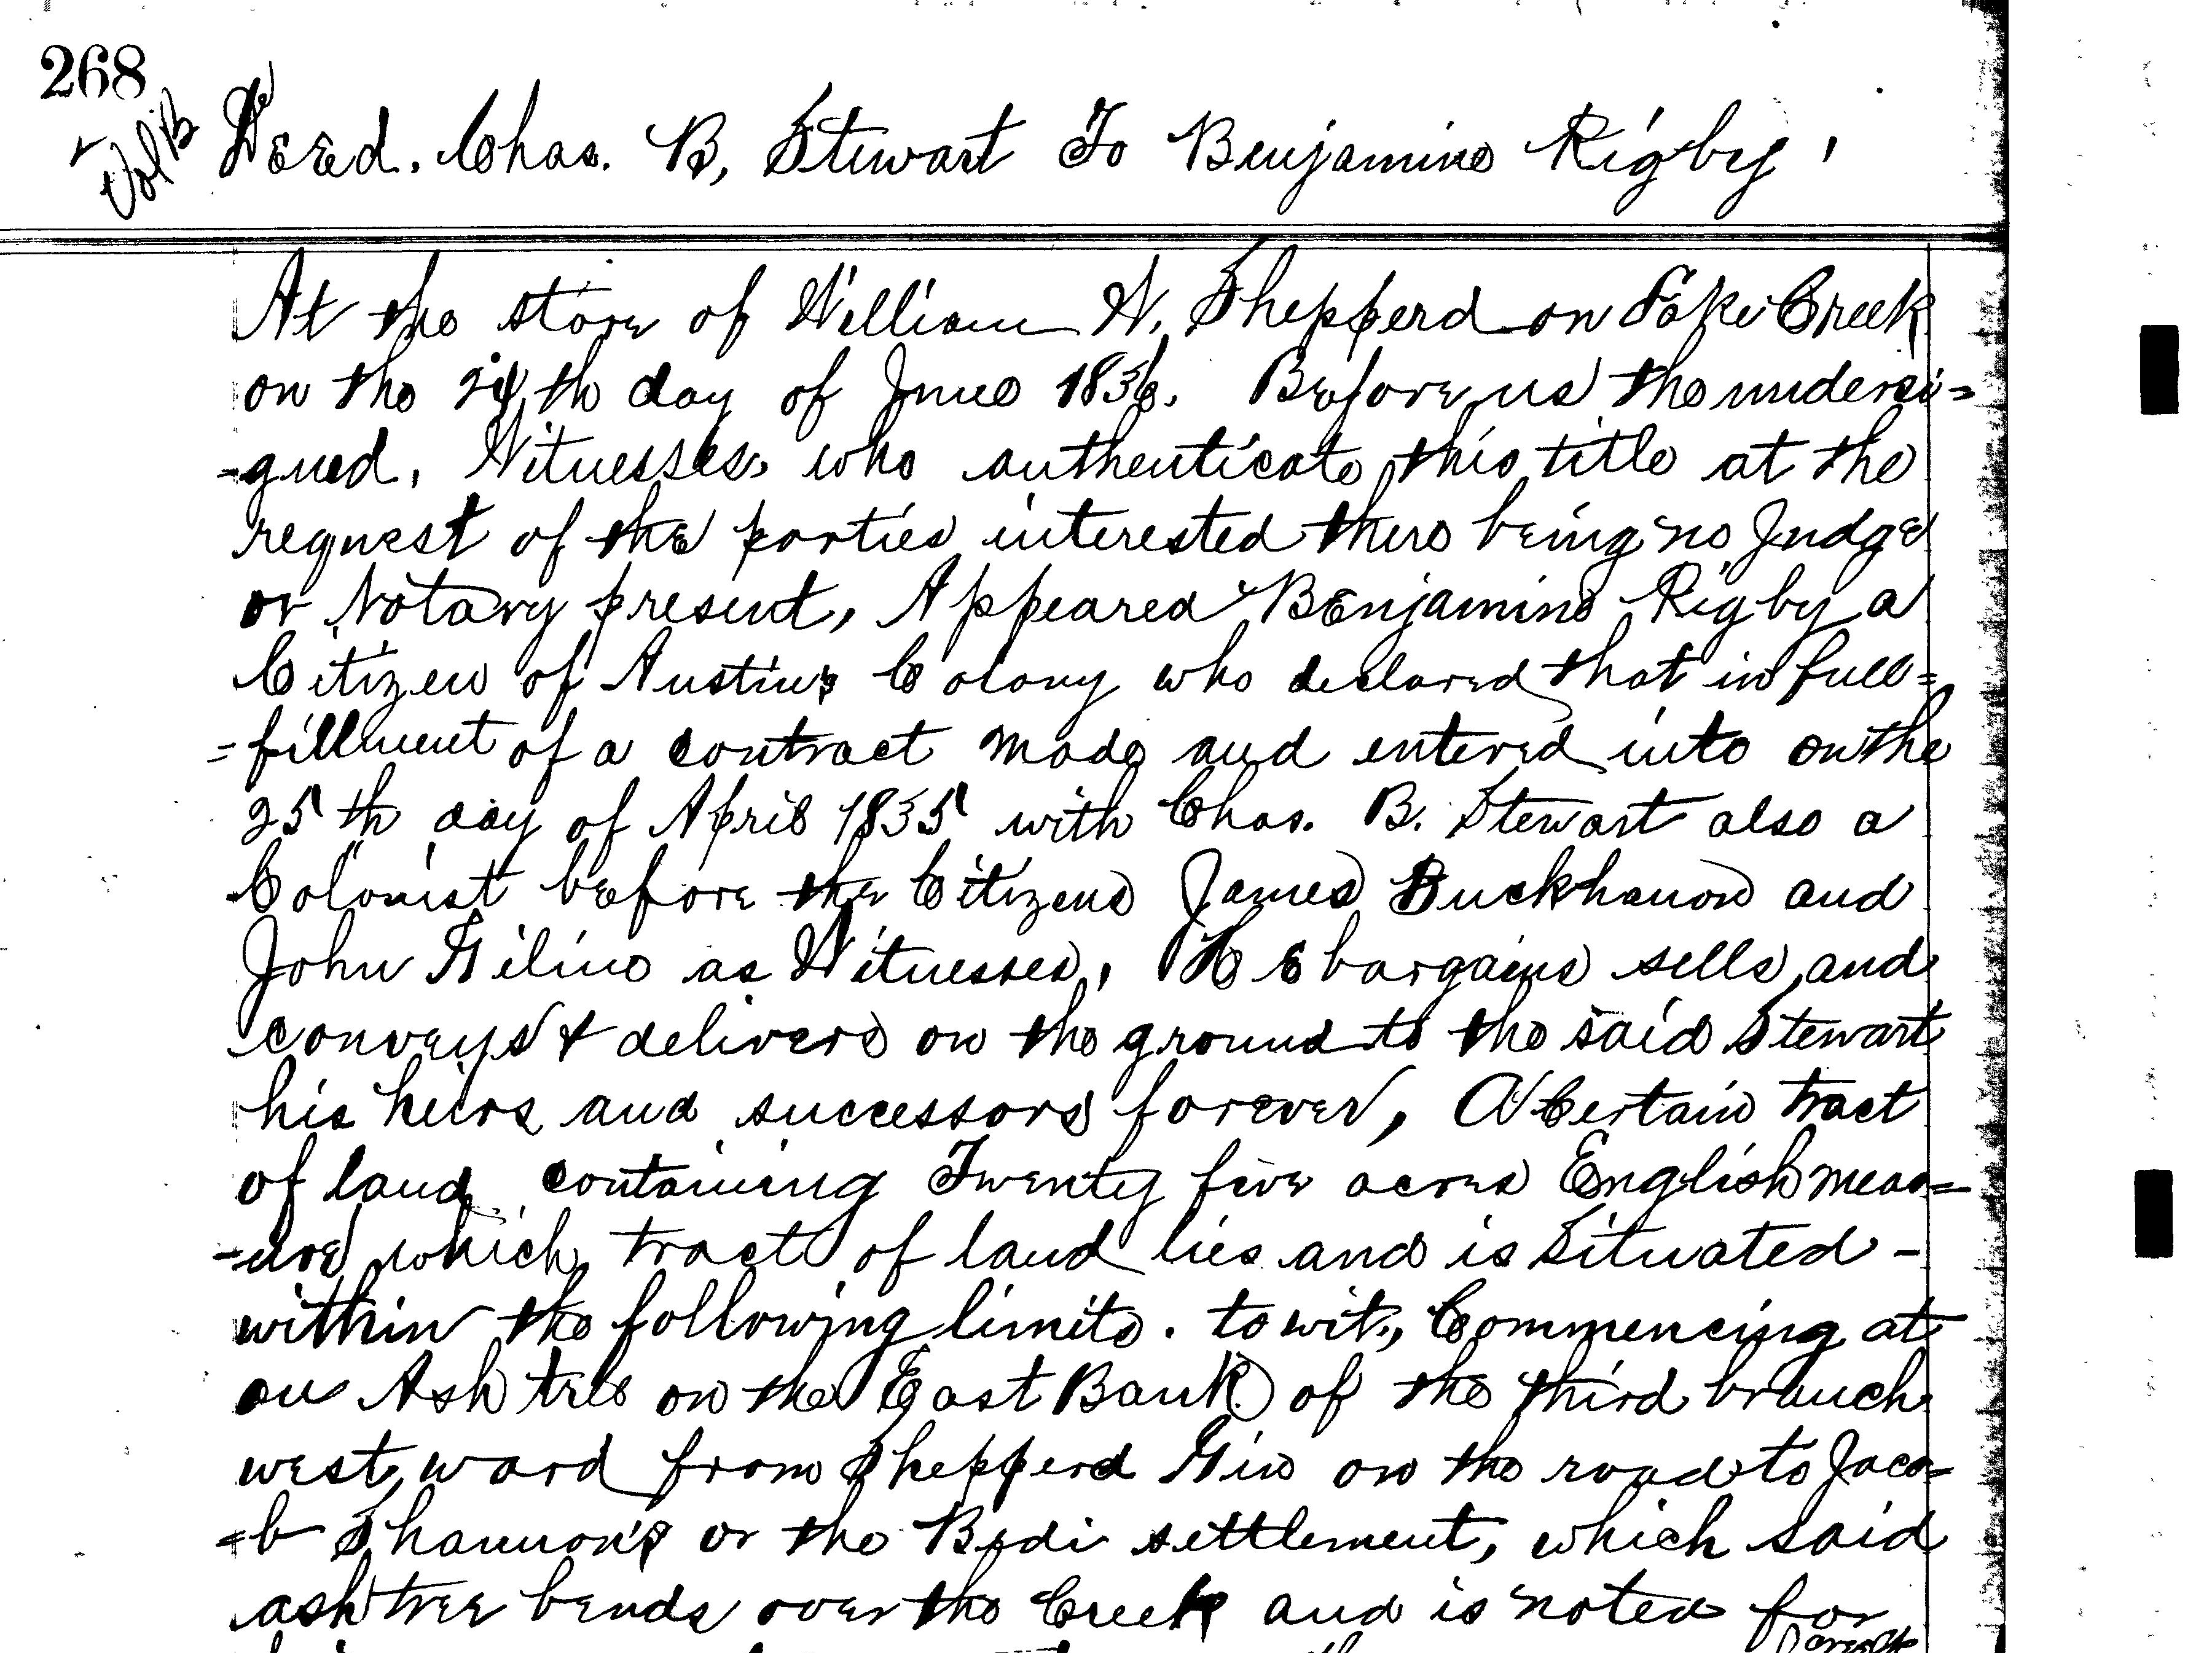 268
Vol B
Deed. Chas. B, Stewart To Benjamine Rigby,
At the store of William W. Shepperd on Lake Creek
on the th day of June 1836. Before us the undersi=
-gned, Witnesses who authenticate this title at the
request of the parties interested there being no Judge
or Notary present, Appeared Benjamine Rigby a
Citizen of Austins Colony who declared that in full=
=fillment of a contract made and entered into on the
25th day of April 1835 with Chas. B. Stewart also a
Colonist before the Citizens James Buckhanon and
John as Witnesses, He bargains sells, and
conveys & delivers on the ground to the said Stewart
his heirs and successors forever, A Certain tract
of land containing Twenty five acres English meas=
-ure which tract of land lies and is Situated -
within the following limits. to wit, Commencing at
an Ash tree on the East Bank of the third branch
west ward from Shepperd Gin on the road to Jaco=
=b Shannon's or the Bedi settlement, which said
ash tree bends over the Creek and is noted for